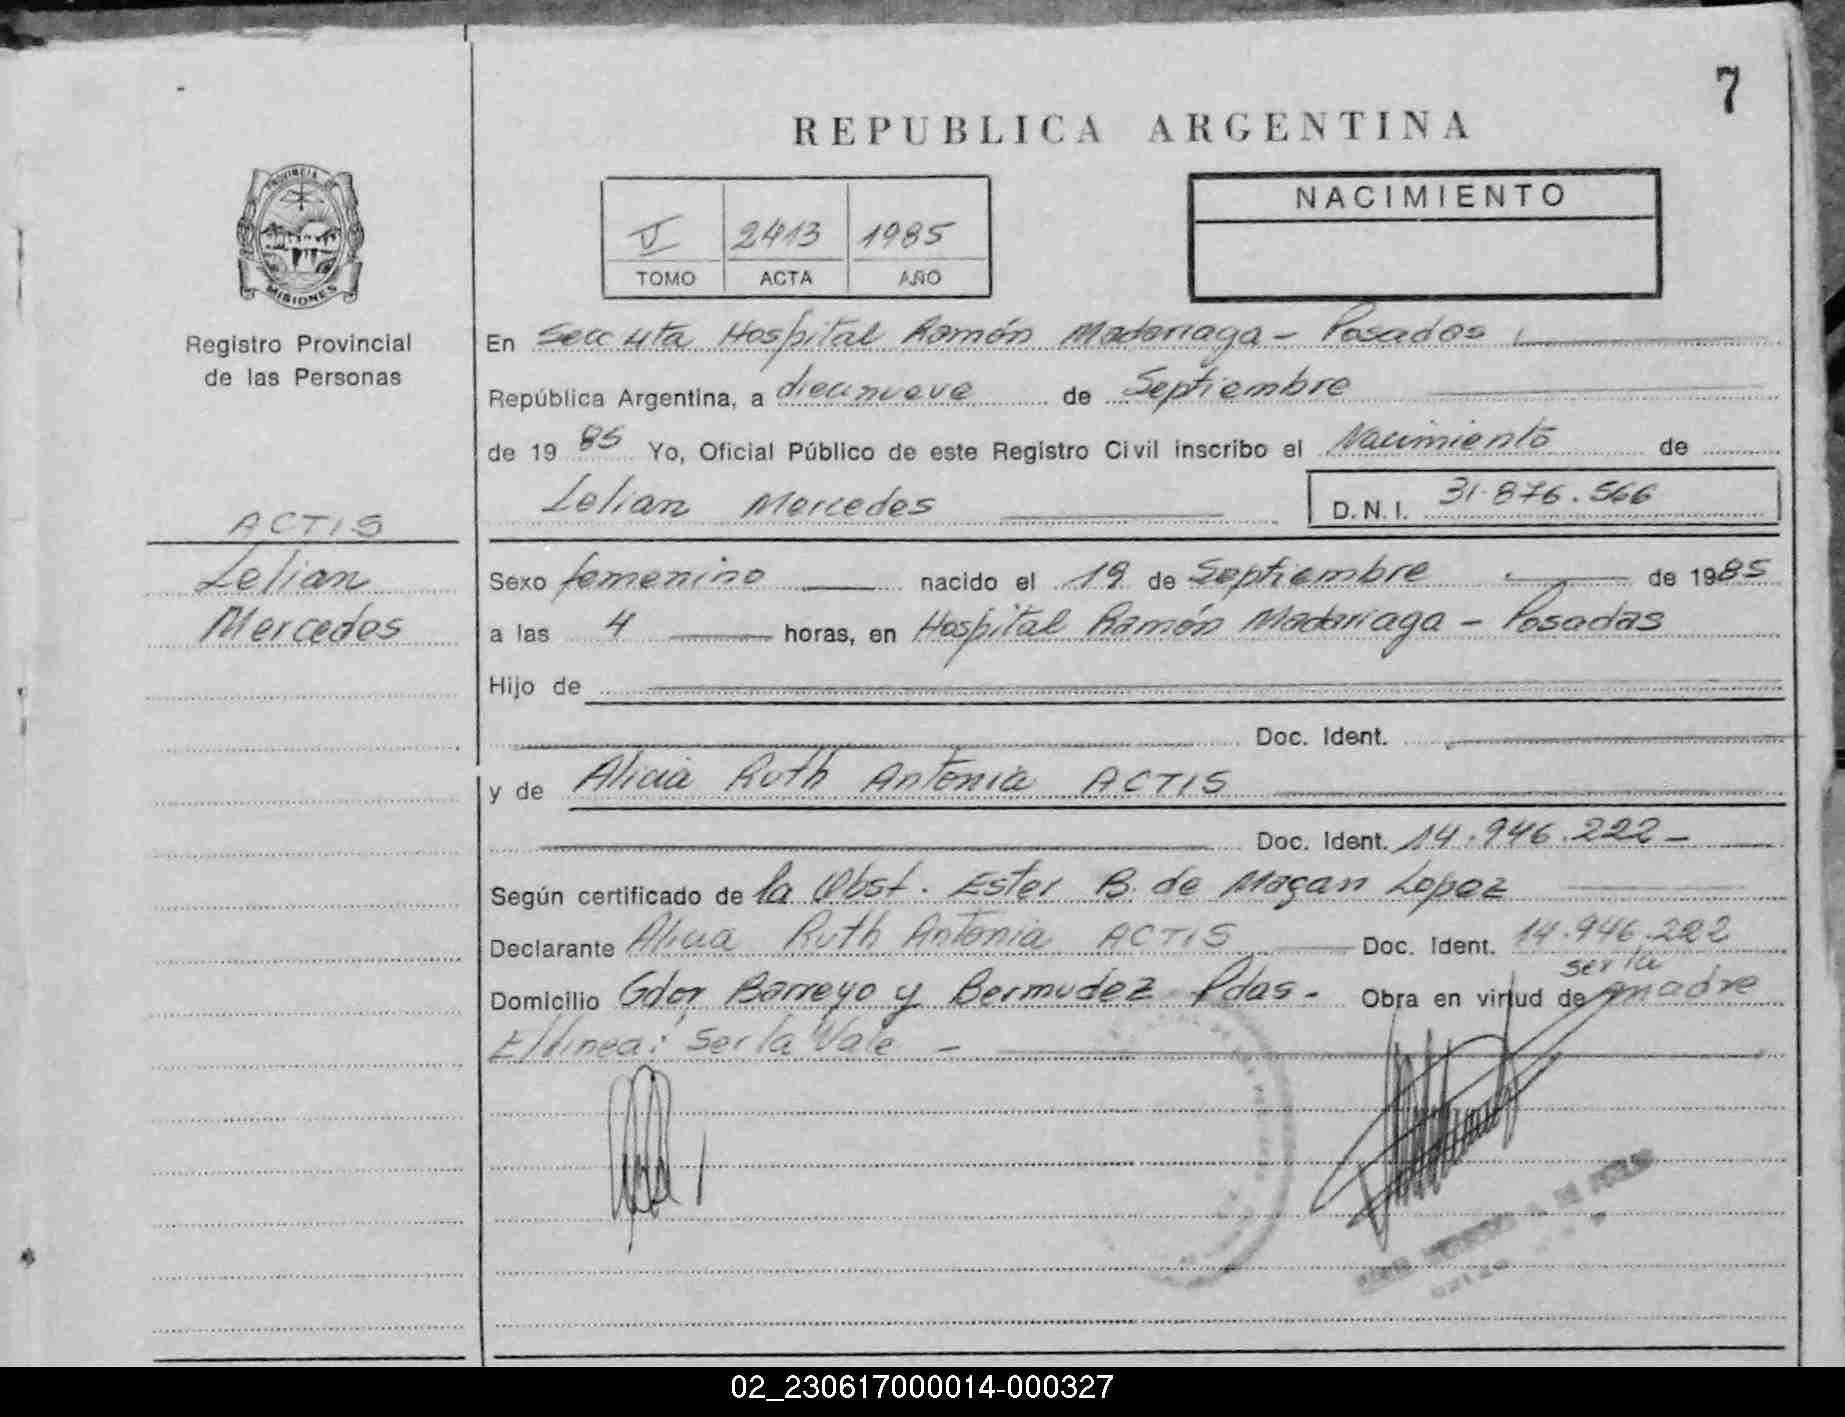 7
REPUBLICA ARGENTINA
PROVINCIA DE
MISIONES
Registro Provincial
de las Personas
2413 1985
TOMO ACTA AÑO
NACIMIENTO
En Secc 4ta Hospital Ramón Madariaga - Posadas
República Argentina, a diecinueve de Septiembre
de 1985 Yo, Oficial Público de este Registro Civil inscribo el Nacimiento de
Lelian Mercedes D.N.I. 31.876.566
ACTIS
Lelian
Mercedes
Sexo femenino nacido el 19 de Septiembre de 1985
a las 4 horas, en Hospital Ramón Madariaga - Posadas
Hijo de
Doc. Ident.
y de Alicia Ruth Antonia ACTIS
Doc. Ident. 14.946.222-
Según certificado de la Obst. Ester B. de Maçan Lopez
Declarante Alicia Ruth Antonia ACTIS Doc. Ident. 14.946.222
ser la
Domicilio Gdor Barreyo y Bermudez Pdas- Obra en virtud de madre
E/linea: Ser la Vale -
02_230617000014-000327